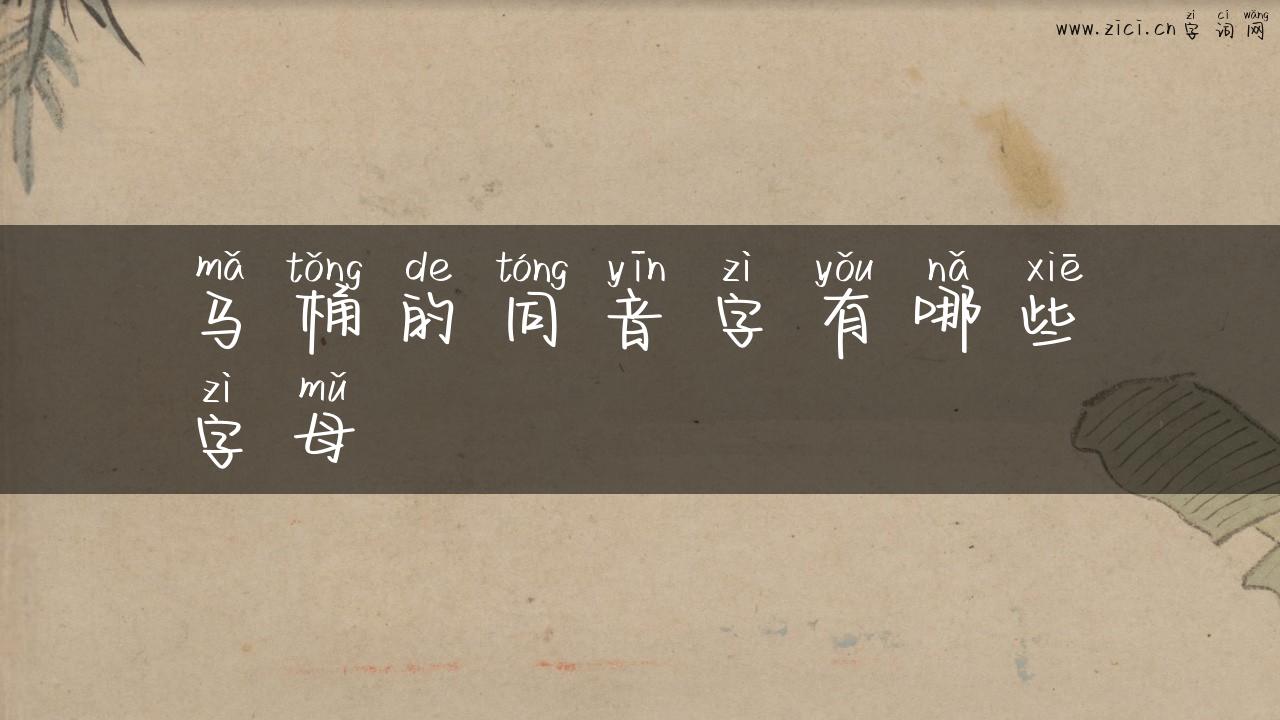 zì cí wǎng
www.zici.cn 字词网
mǎ tǒng de tóng yīn zì yǒu nǎ xiē
马桶的同音字有哪些
zì mǔ
字母